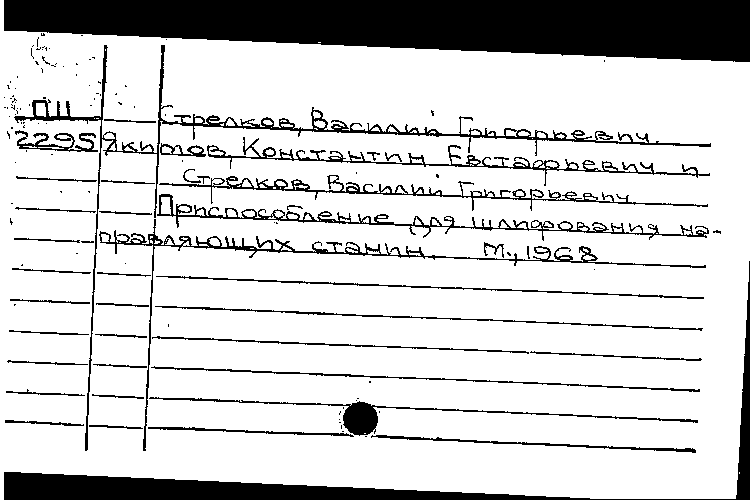 ПШ Стрелков, Василий Григорьевич.
2295 Якимов, Константин Евстафьевич и
Стрелков, Василий Григорьевич.
Приспособление для шлифования на-
правляющих станин. М., 1968